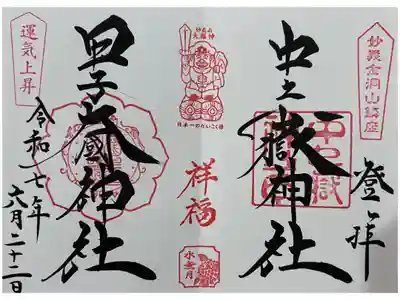 妙義金洞山鎮座
登拝
中之嶽神社
日本一のだいこく様
祥福
水無月
甲子大國神社
運気上昇
令和七年
六月二十二日